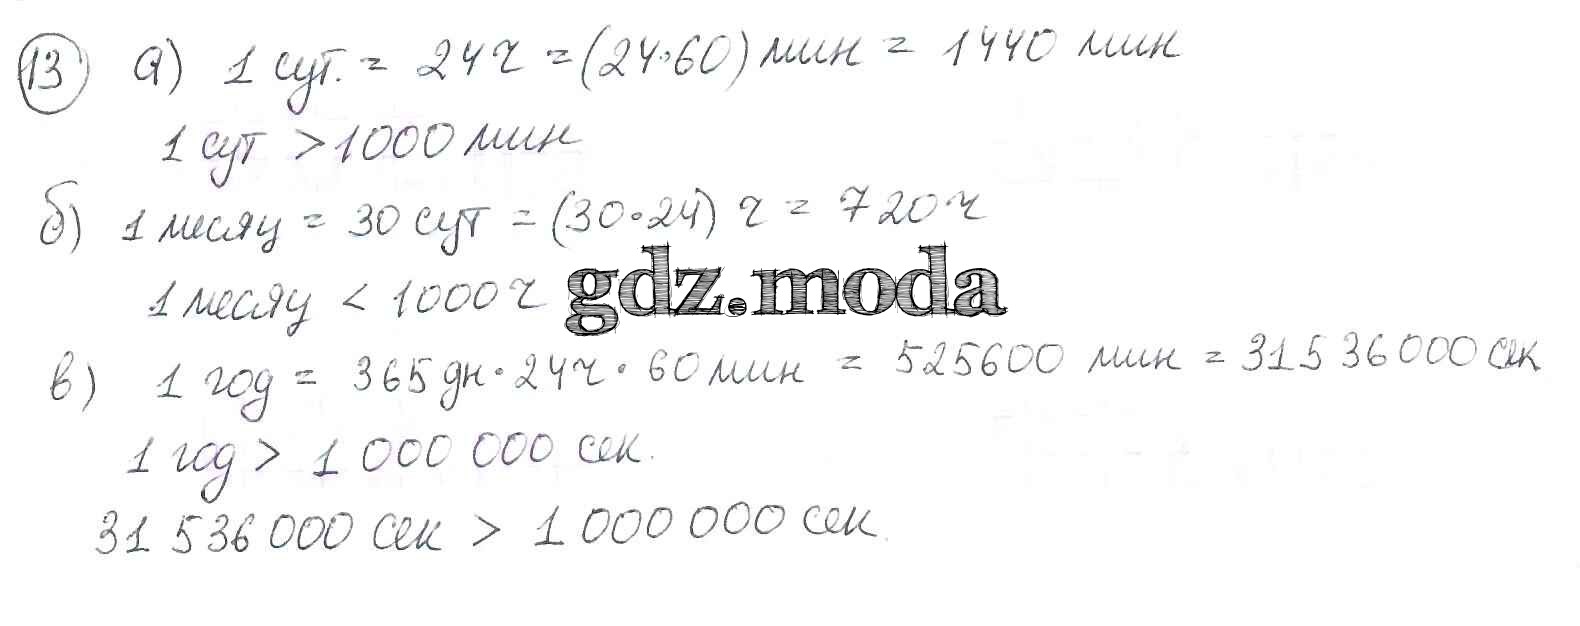 13 а) 1 сут. = 24ч = (24·60) мин = 1440 мин
1 сут > 1000 мин
б) 1 месяц = 30 сут = (30·24) ч = 720ч
1 месяц < 1000ч
gdz.moda
в) 1 год = 365 дн · 24ч · 60 мин = 525600 мин = 31536000 сек
1 год > 1 000 000 сек.
31 536 000 сек > 1 000 000 сек.